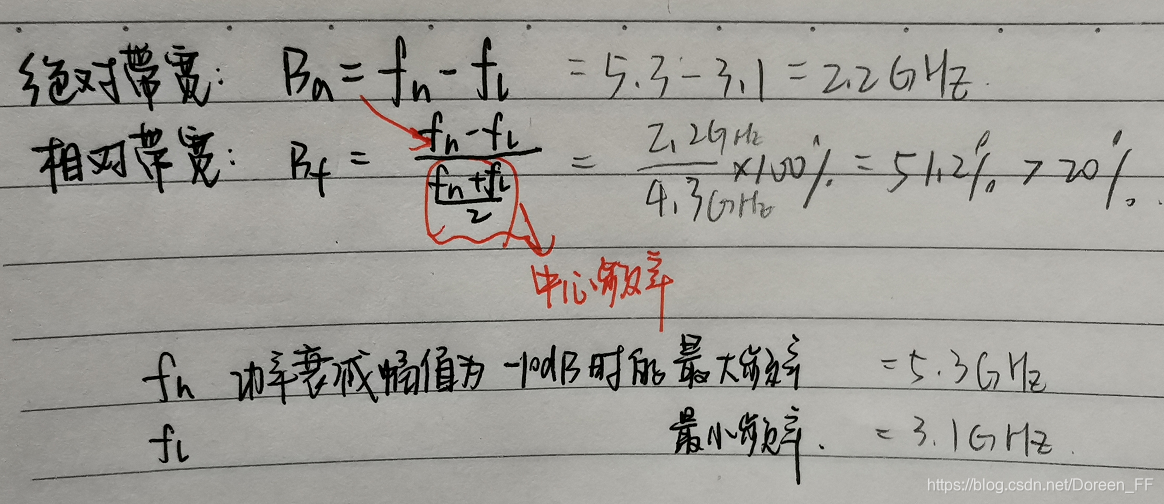 绝对带宽: Ba = fh - fl = 5.3 - 3.1 = 2.2GHz.
相对带宽: Bf = (fh - fl) / ((fh + fl) / 2) = 2.2GHz / 4.3GHz ×100% = 51.2% > 20%.
中心频率
fh 功率衰减幅值为 -10dB时的最大频率 = 5.3GHz
fl 最小频率. = 3.1GHz.
https://blog.csdn.net/Doreen_FF